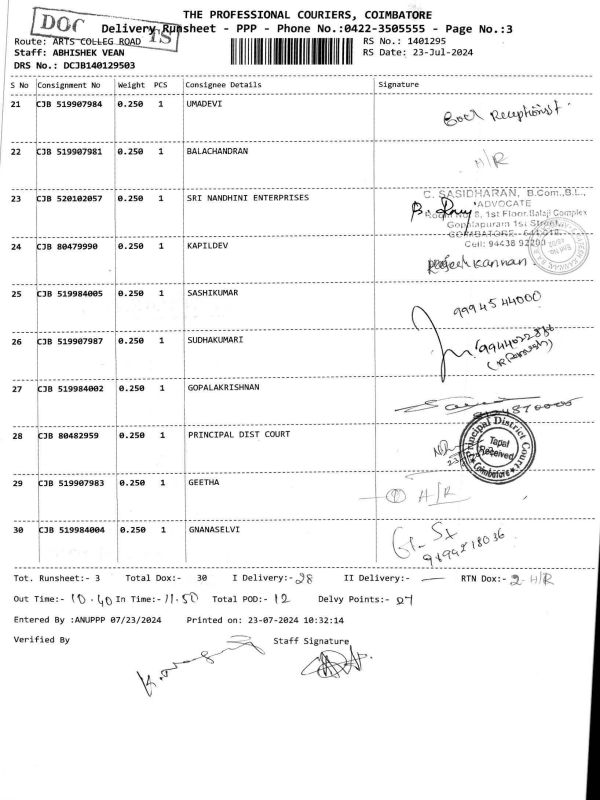 THE PROFESSIONAL COURIERS, COIMBATORE
DOC
TS
Delivery Runsheet - PPP - Phone No.:0422-3505555 - Page No.:3
Route: ARTS COLLEG ROAD
RS No.: 1401295
Staff: ABHISHEK VEAN
RS Date: 23-Jul-2024
DRS No.: DCJB140129503
S No Consignment No Weight PCS Consignee Details Signature
21 CJB 519907984 0.250 1 UMADEVI
Receptionist
22 CJB 519907981 0.250 1 BALACHANDRAN
H/R
23 CJB 520102057 0.250 1 SRI NANDHINI ENTERPRISES
C. SASIDHARAN, B.Com.,B.L.,
ADVOCATE
Room No 8, 1st Floor, Balaji Complex
Gopalapuram 1st Street,
COIMBATORE - 641 018.
Cell: 94438 92200
24 CJB 80479990 0.250 1 KAPILDEV
Kannan
25 CJB 519984005 0.250 1 SASHIKUMAR
9994544000
26 CJB 519907987 0.250 1 SUDHAKUMARI
27 CJB 519984002 0.250 1 GOPALAKRISHNAN
28 CJB 80482959 0.250 1 PRINCIPAL DIST COURT
Principal District Court
Tapal
Received
Coimbatore
29 CJB 519907983 0.250 1 GEETHA
① H/R
30 CJB 519984004 0.250 1 GNANASELVI
9894218036
Tot. Runsheet:- 3 Total Dox:- 30 I Delivery:- 28 II Delivery:- — RTN Dox:- 2 H/R
Out Time:- 10.40 In Time:- 11.50 Total POD:- 12 Delvy Points:- 27
Entered By :ANUPPP 07/23/2024 Printed on: 23-07-2024 10:32:14
Verified By Staff Signature